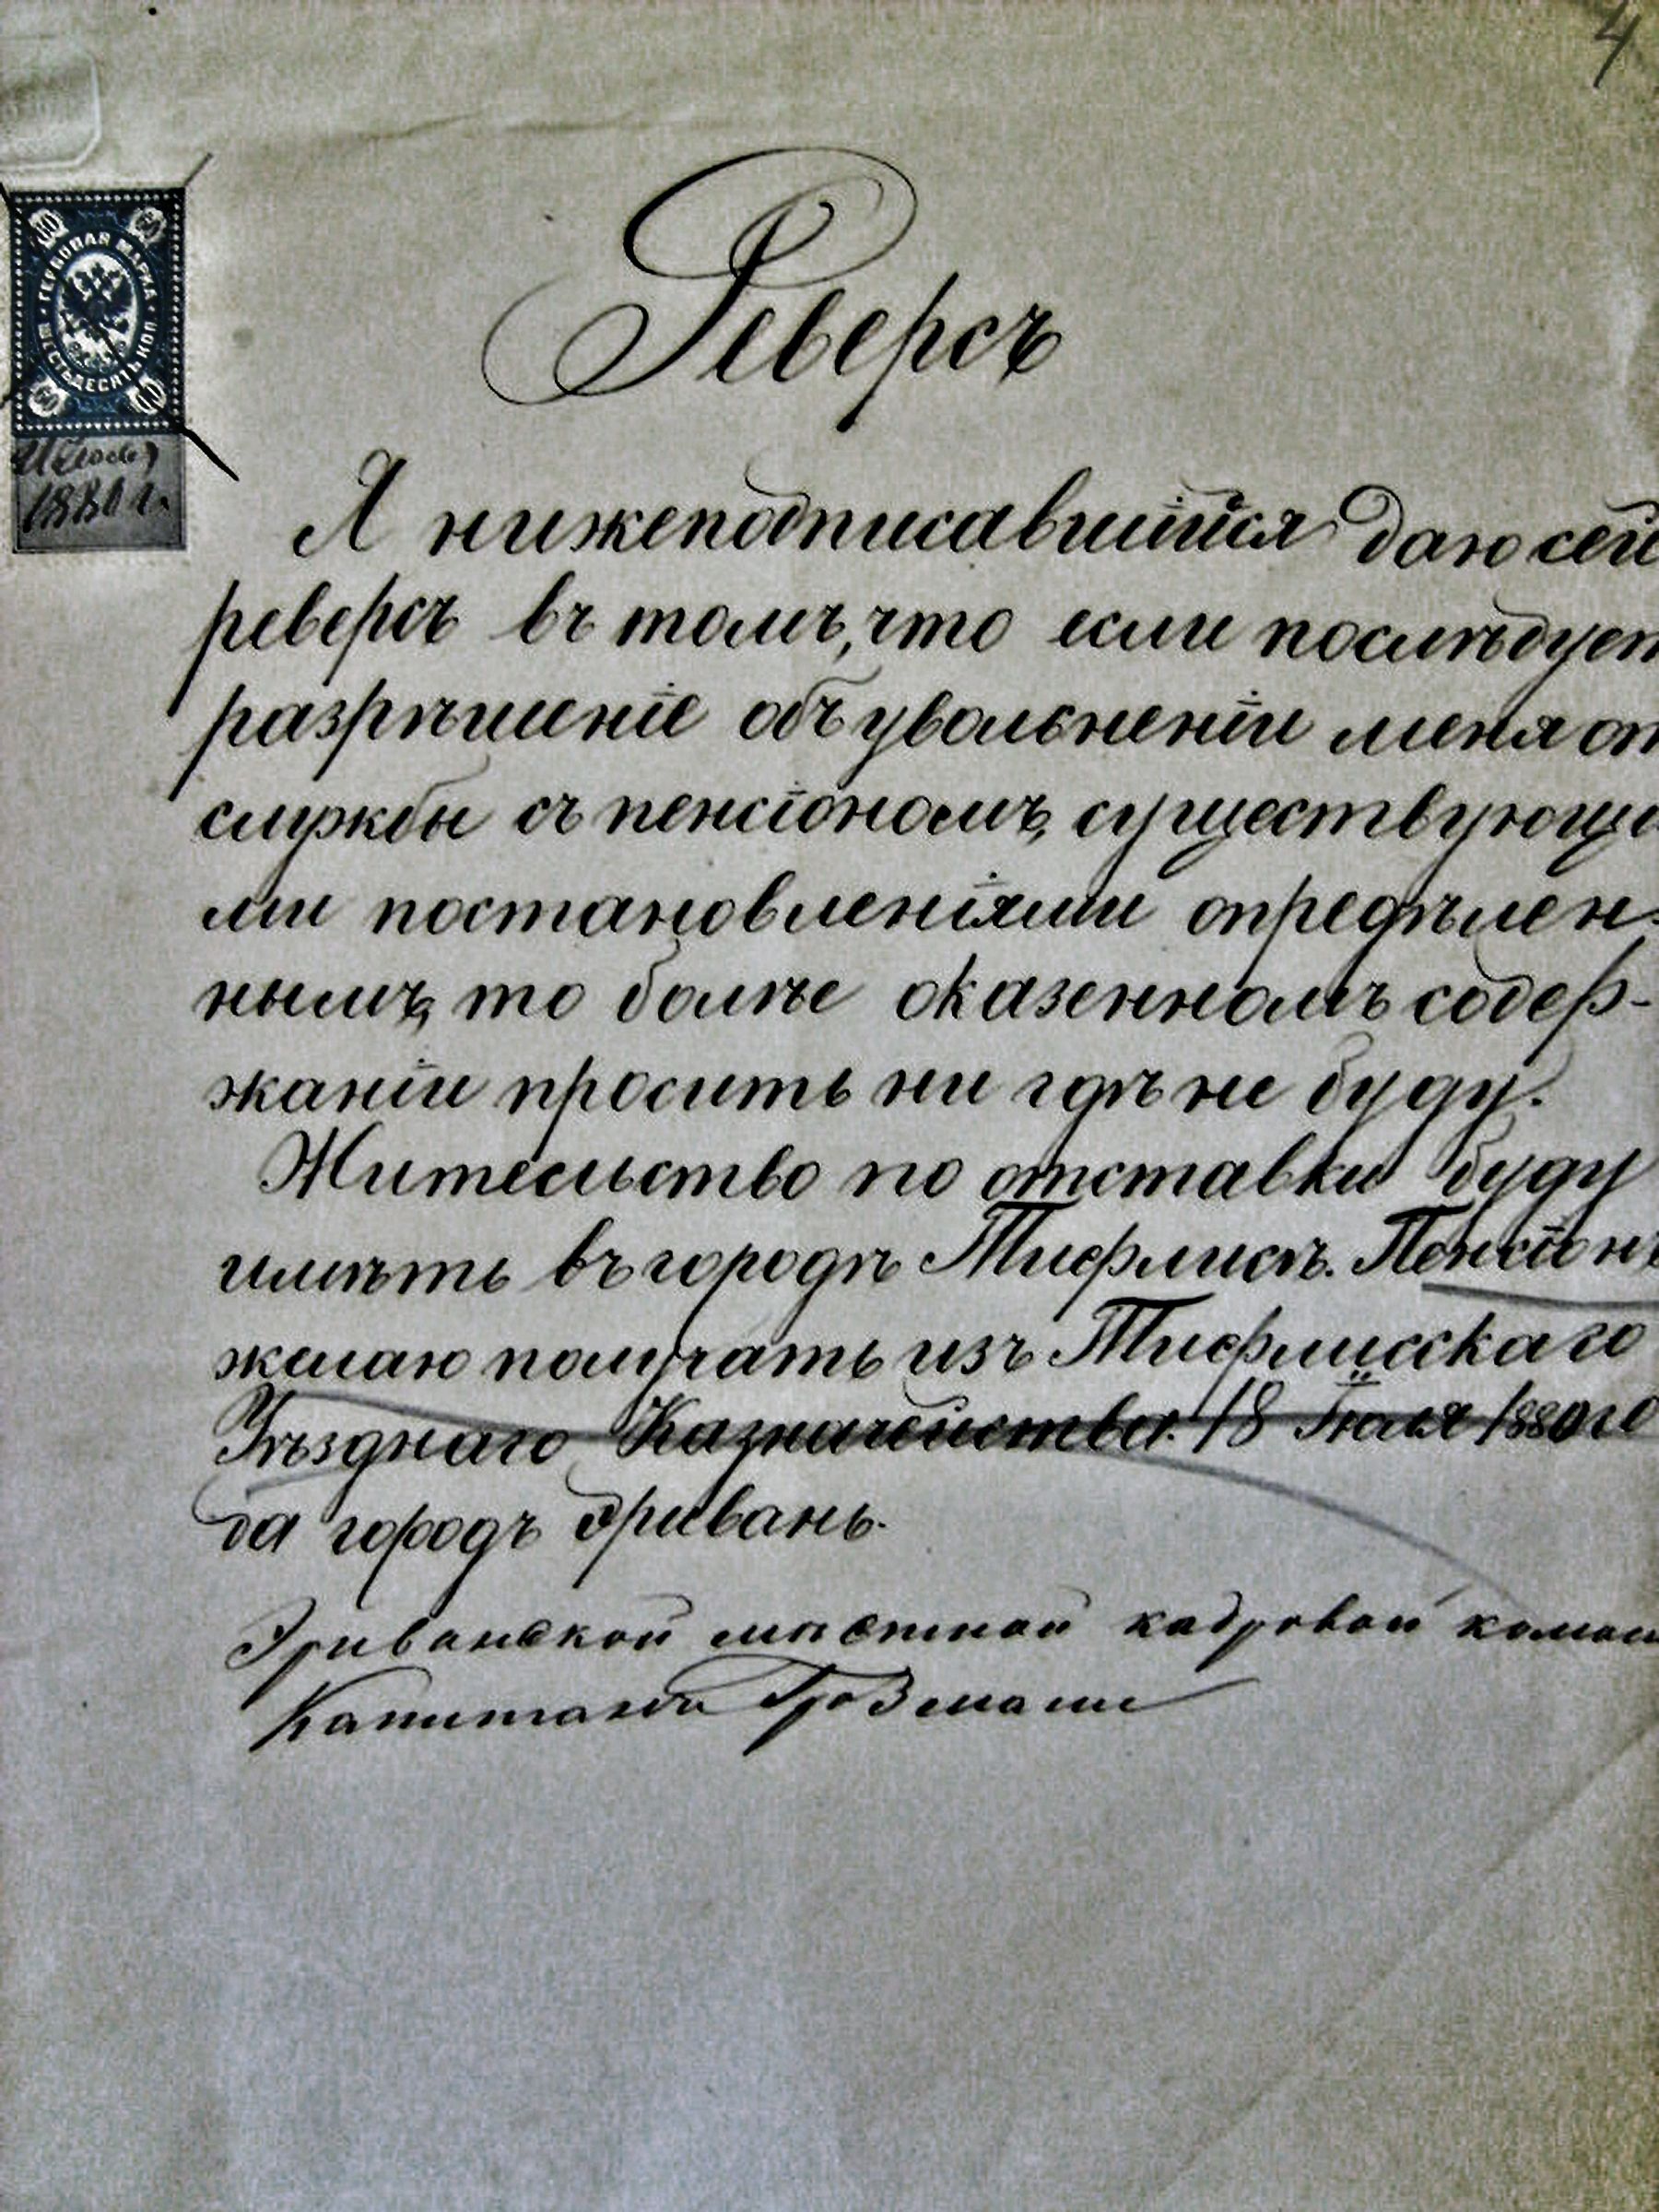 4
ГЕРБОВАЯ МАРКА
ШЕСТЬДЕСЯТЪ КОП.
60 60
60 60
1880 г.
Реверсъ
Я нижеподписавшійся даю сей
реверсъ въ томъ, что если послѣдует
разрѣшеніе объ увольненіи меня от
службы съ пенсіономъ, существующи
ми постановленіями опредѣлен-
нымъ, то болѣе о казенномъ содер-
жаніи просить ни гдѣ не буду.
Жительство по отставки буду
имѣть въ городѣ Тифлисѣ. Пенсіонъ
желаю получать изъ Тифлисскаго
Уѣзднаго Казначейства. 18 Іюля 1880 го
да городъ Эривань.
Эриванской мѣстной кадровой коман
Капитанъ Грозманъ